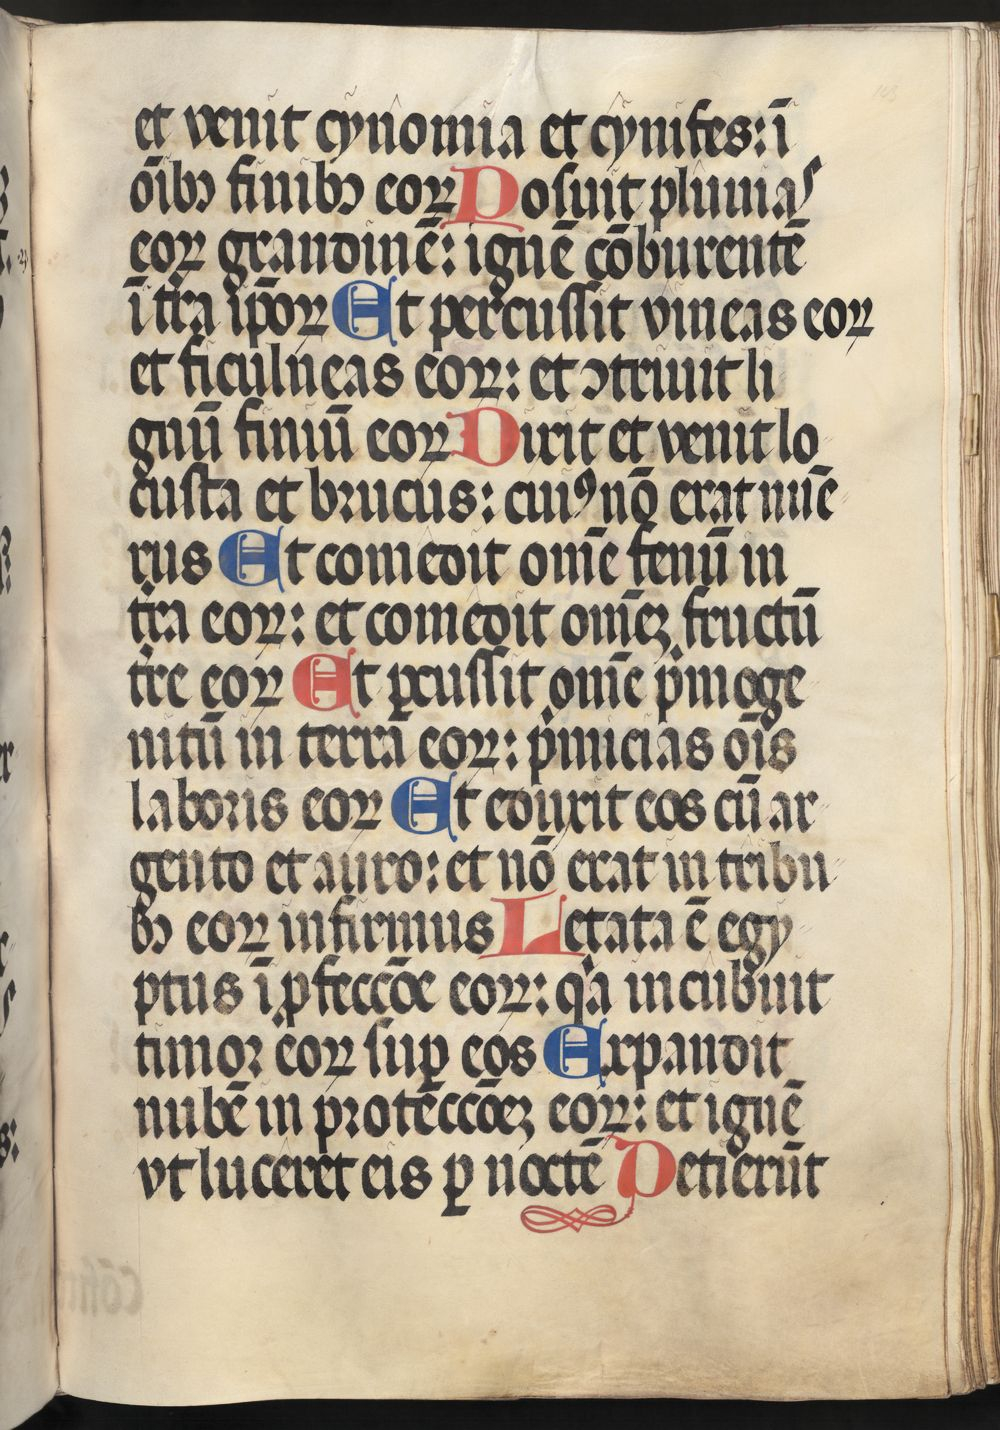 et venit cynomia et cynifes: ī
oībꝰ finibꝰ eoꝝ Posuit pluuias
eoꝝ grandinē: ignē cōburentē
ī tr̄a ip̄oꝝ Et percussit vineas eoꝝ
et ficulneas eoꝝ: et ↄtriuit li
gnū finiū eoꝝ Dixit et venit lo
custa et brucus: cuiꝰ nō erat nūe
rus Et comedit om̄e fenū in
tr̄a eoꝝ: et comedit om̄eꝫ fructū
tr̄e eoꝝ Et ꝑcussit om̄e p̄moge
nitū in terrā eoꝝ: p̄micias oīs
laboris eoꝝ Et eduxit eos cū ar
gento et auro: et nō erat in tribu
bꝰ eoꝝ infirmus Letata ē egy
ptus ī ꝓfeccōe eoꝝ: qꝛa incubuit
timor eoꝝ suꝑ eos Expandit
nubē in protēccōeꝫ eoꝝ: et ignē
vt luceret eis ꝑ noctē Petierūt